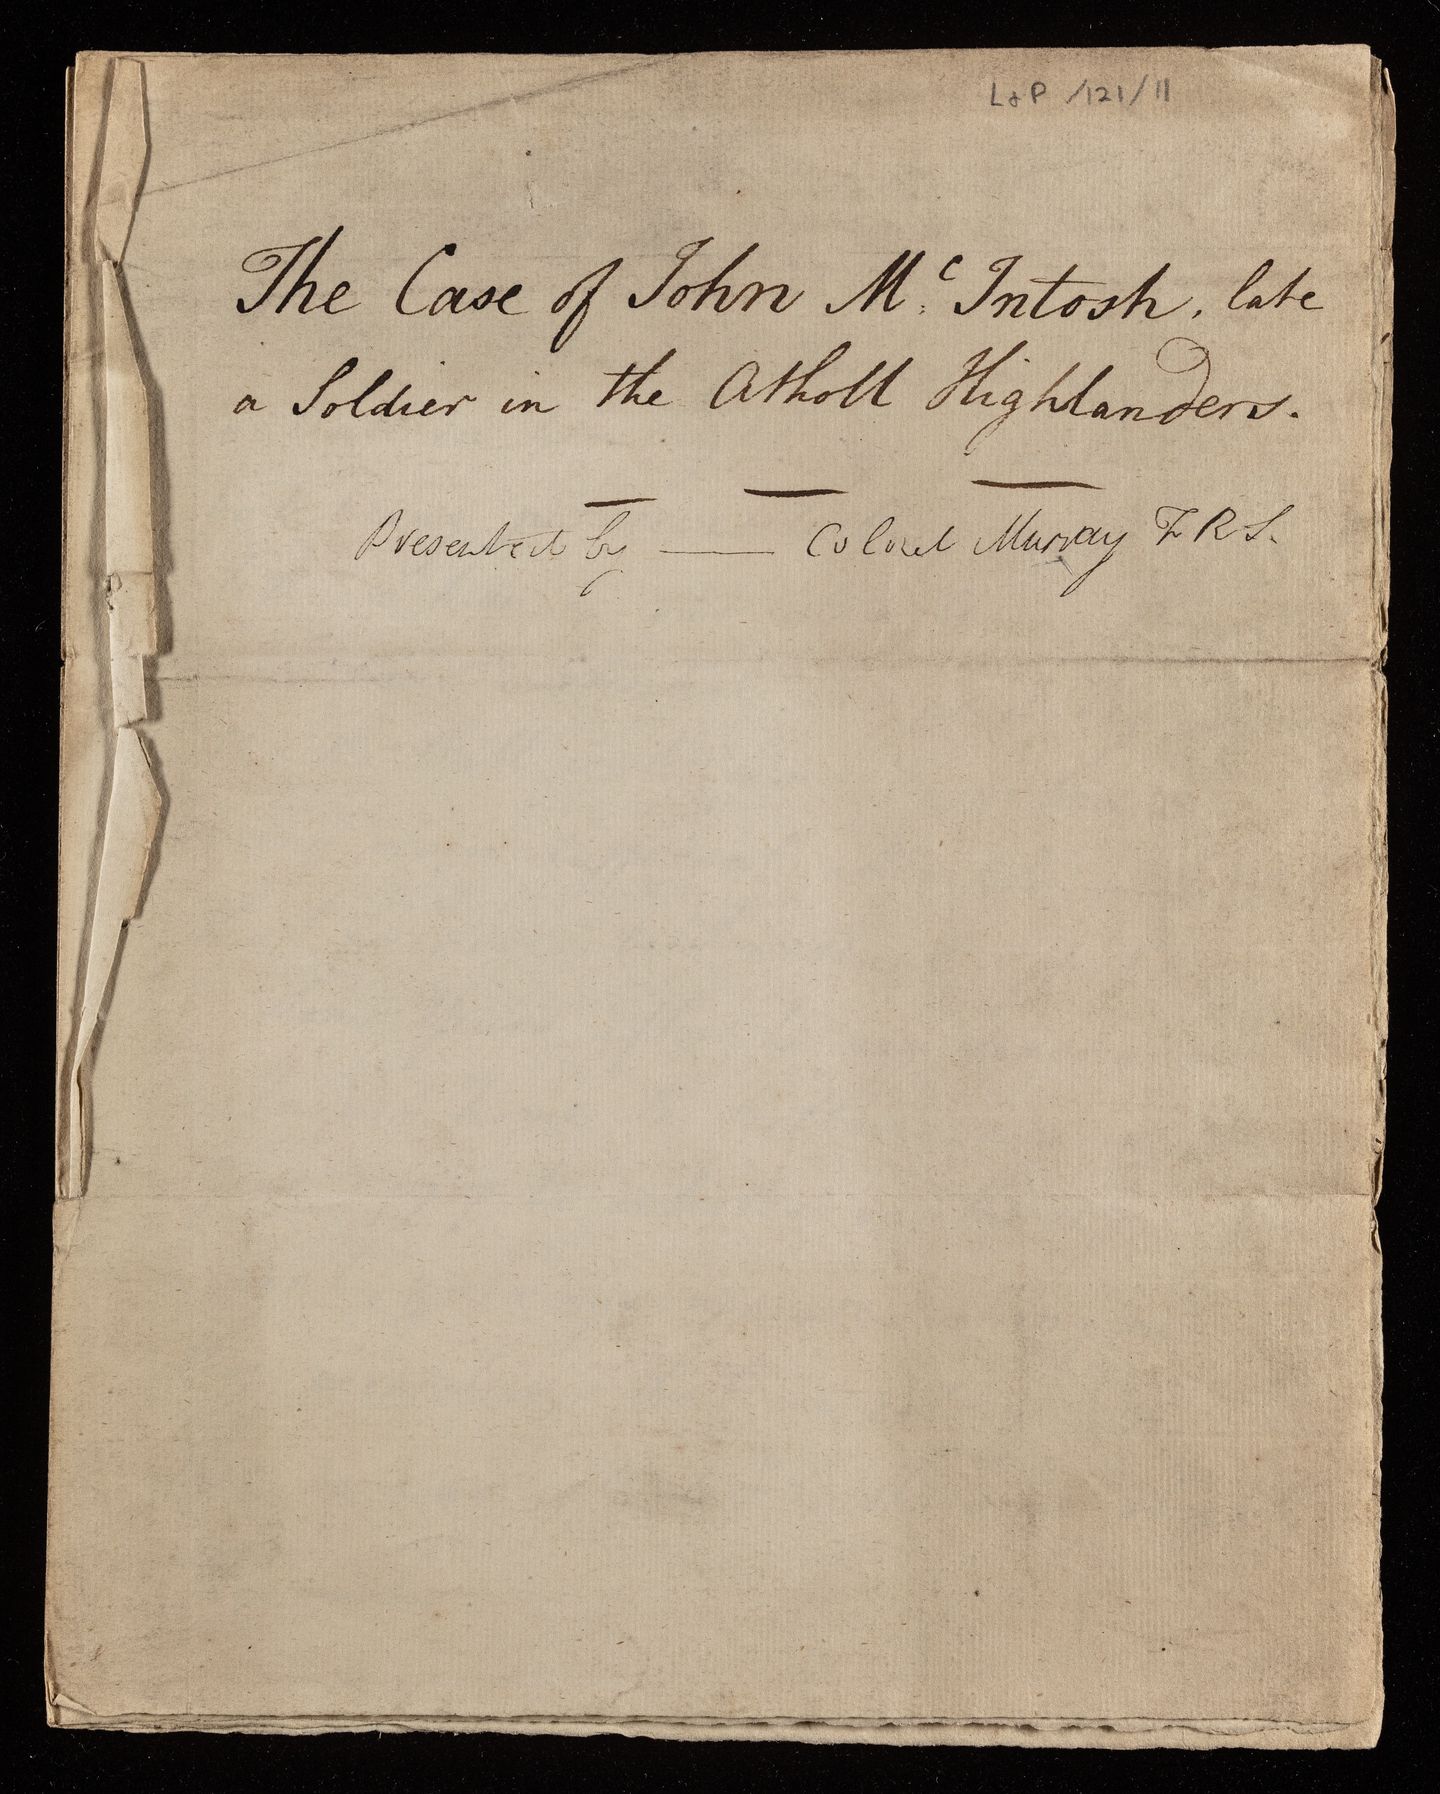 L&P /121/11
The Case of John Mc. Intosh, late
a Soldier in the Atholl Highlanders.
Presented by — Colonel Murray F R S.